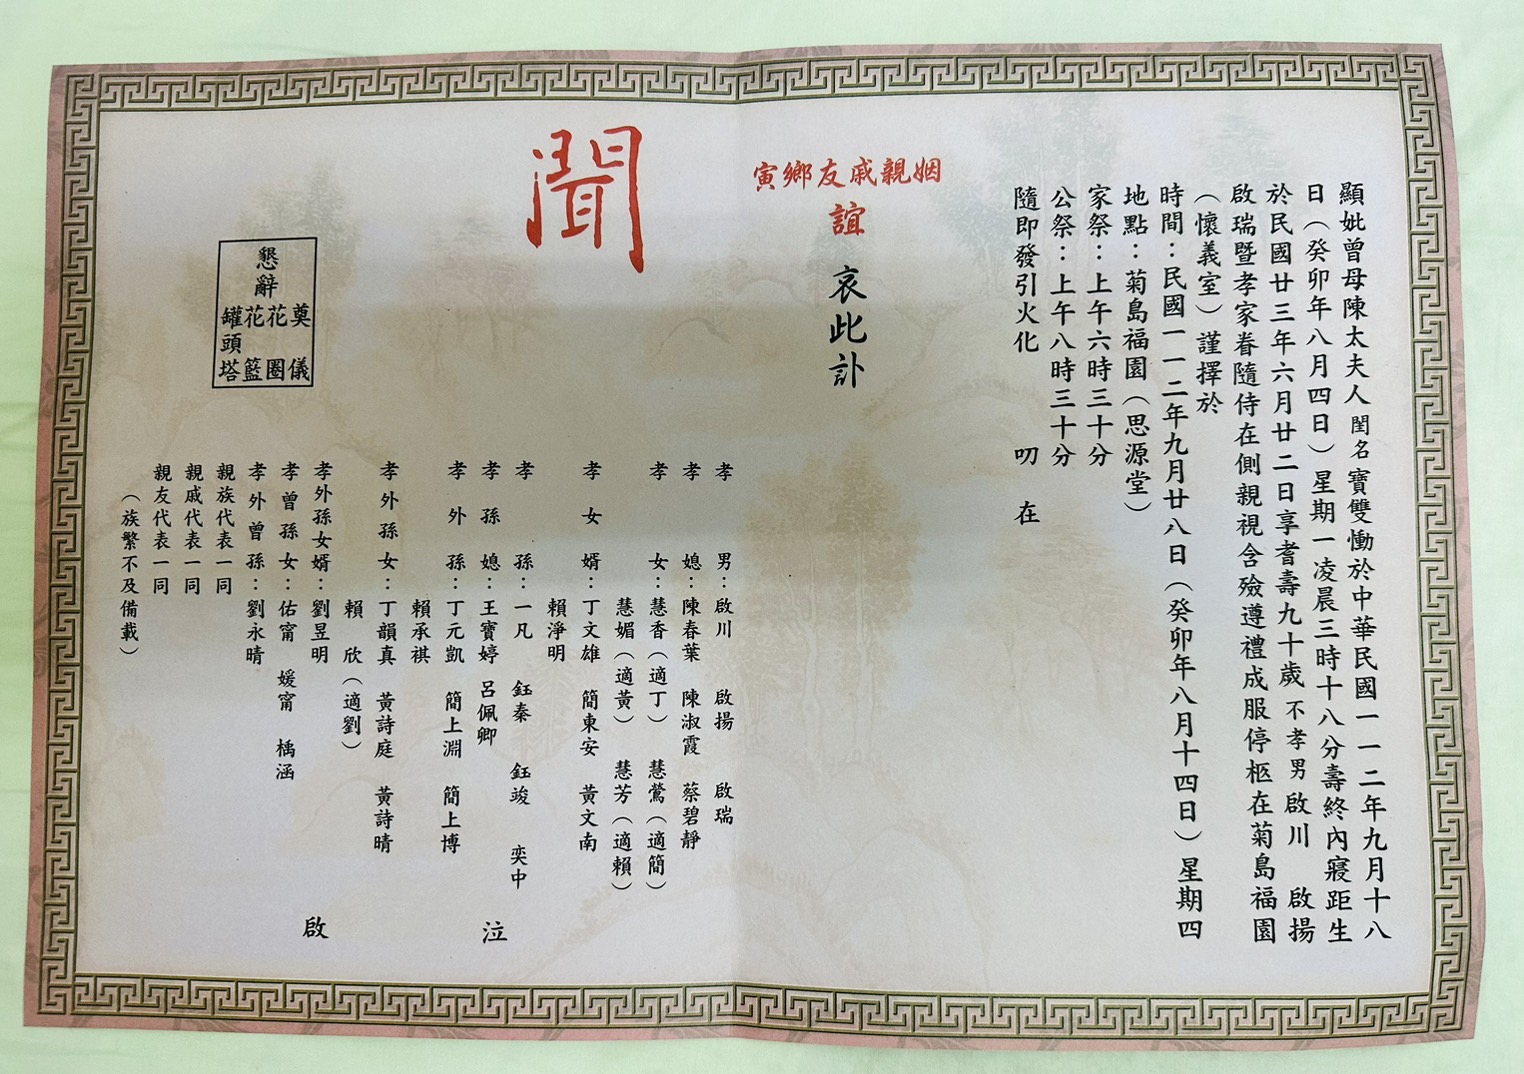 顯妣曾母陳太夫人閨名寶雙慟於中華民國一一二年九月十八
日（癸卯年八月四日）星期一凌晨三時十八分壽終內寢距生
於民國廿三年六月廿二日享耆壽九十歲不孝男啟川　啟揚
啟瑞暨孝家眷隨侍在側親視含殮遵禮成服停柩在菊島福園
（懷義室）謹擇於
時間：民國一一二年九月廿八日（癸卯年八月十四日）星期四
地點：菊島福園（思源堂）
家祭：上午六時三十分
公祭：上午八時三十分
隨即發引火化　叨　在
姻親戚友鄉寅
誼　哀此訃
聞
孝男：啟川　啟揚　啟瑞
孝媳：陳春葉　陳淑霞　蔡碧靜
孝女：慧香（適丁）　慧鶯（適簡）
慧媚（適黃）　慧芳（適賴）
孝女婿：丁文雄　簡東安　黃文南
賴淨明
孝孫：一凡　鈺秦　鈺竣　奕中
孝孫媳：王寶婷　呂佩卿
孝外孫：丁元凱　簡上淵　簡上博
賴承祺
孝外孫女：丁韻真　黃詩庭　黃詩晴
賴　欣（適劉）
孝外孫女婿：劉昱明
孝曾孫女：佑甯　媛甯　檇涵
孝外曾孫：劉永晴
親族代表一同
親戚代表一同
親友代表一同
（族繁不及備載）
泣
啟
懇辭
奠儀
花圈
花籃
罐頭塔